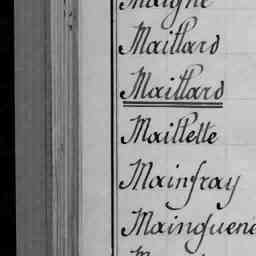 Maigne
Maillard
Maillard
Maillette
Mainfray
Mainguene